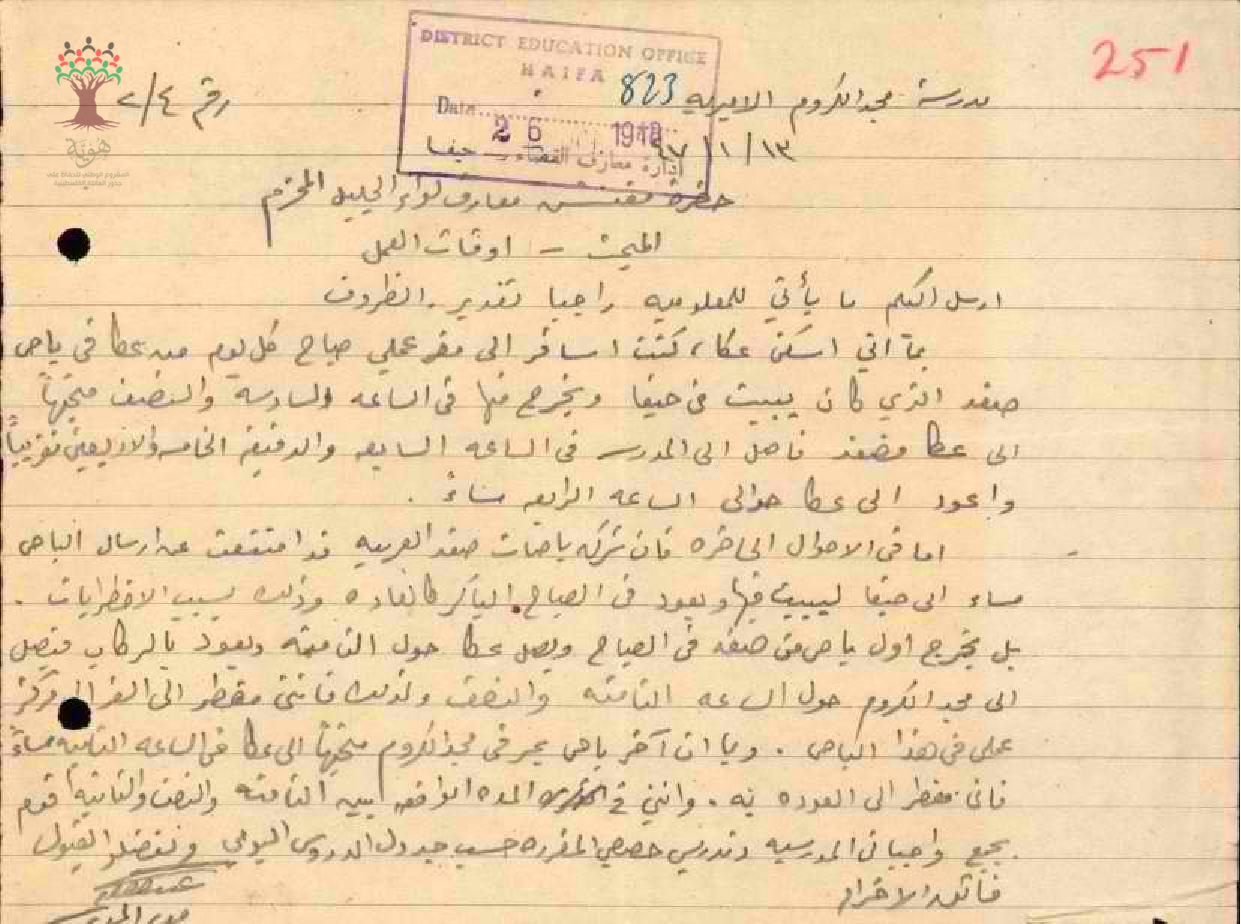 251
DISTRICT EDUCATION OFFICE
HAIFA
823
Date
26 1948
إدارة معارف القضاء - حيفا
مدرسة مجد الكروم الاميريه
رقم ٢/٤
١٣/١/
هويّة
المشروع الوطني للحفاظ على
جذور العائلة الفلسطينية
حضرة مفتش معارف لواء الجليل المحترم
المبحث - اوقات العمل
ارسل اليكم ما يأتي للمعلوميه راجيا تقدير الظروف
بما اني اسكن عكا، كنت اسافر الى مقر عملي صباح كل يوم من عكا في باص
صفد الذي كان يبيت في حيفا ويخرج منها في الساعه السادسة والنصف متجهاً
الى عكا فصفد فاصل الى المدرسه في الساعه السابعه والدقيقه الخامسه والاربعين تقريباً
واعود الى عكا حوالى الساعه الرابعه مساءً .
اما في الاحوال الحاضره فان شركه باصات صفد العربيه قد امتنعت عن ارسال الباص
مساء الى حيفا ليبيت فيها ويعود في الصباح الباكر كالعاده وذلك بسبب الاضطرابات .
بل يخرج اول باص من صفد في الصباح ويصل عكا حول الثامنه ويعود بالركاب فيصل
الى مجد الكروم حول الساعه الثامنه والنصف ولذلك فانني مضطر الى السفر الى مركز
عملي في هذا الباص . وبما ان آخر باص يمر في مجد الكروم متجهاً الى عكا في الساعه الثانيه مساءً
فاني مضطر الى العوده به . وانني في المده الواقعه بين الثامنه والنصف والثانية اقوم
بجميع واجباتي المدرسيه وتدريس حصصي المقرره حسب جدول الدروس اليومي وتفضلوا بقبول
فائق الاحترام
مدير المدرسة